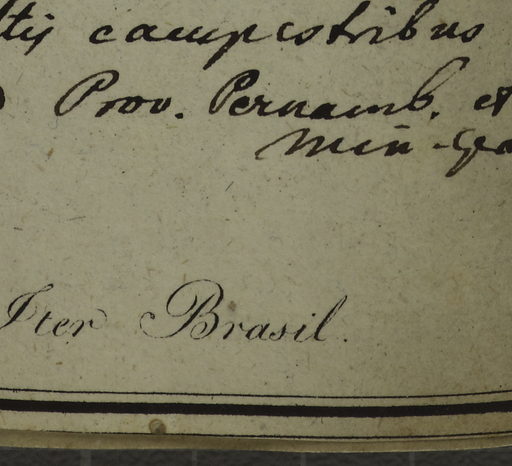 campestribus
Prov. Pernamb. et
Min-Ge
Iter Brasil.